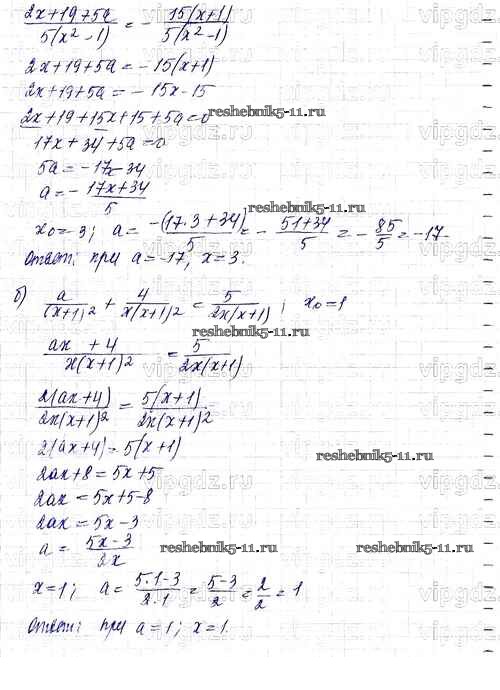 (2x+19+5a)/(5(x²-1)) = - (15(x+1))/(5(x²-1))
2x+19+5a = -15(x+1)
2x+19+5a = -15x-15
2x+19+15x+15+5a=0
reshebnik5-11.ru
17x+34+5a=0
5a = -17x-34
a = - (17x+34)/5
reshebnik5-11.ru
x₀=3; a = (-(17·3+34))/5 = - (51+34)/5 = - 85/5 = -17
Ответ: при a=-17, x=3.
б) a/(x+1)² + 4/(x(x+1)²) = 5/(2x(x+1)); x₀=1
reshebnik5-11.ru
(ax+4)/(x(x+1)²) = 5/(2x(x+1))
(2(ax+4))/(2x(x+1)²) = (5(x+1))/(2x(x+1)²)
2(ax+4)=5(x+1)
reshebnik5-11.ru
2ax+8=5x+5
2ax = 5x+5-8
2ax = 5x-3
a = (5x-3)/(2x)
reshebnik5-11.ru reshebnik5-11.ru
x=1; a = (5·1-3)/(2·1) = (5-3)/2 = 2/2 = 1
Ответ: при a=1; x=1.
vipgdz.ru